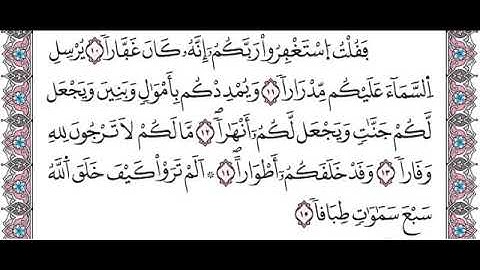 فَقُلْتُ اِ۪سْتَغْفِرُواْ رَبَّكُمُۥٓ إِنَّهُۥ كَانَ غَفَّاراٗ ١٠ يُرْسِلِ
اِ۬لسَّمَآءَ عَلَيْكُم مِّدْرَاراٗ ١١ وَيُمْدِدْكُم بِأَمْوَٰلٖ وَبَنِينَ وَيَجْعَل
لَّكُمْ جَنَّٰتٖ وَيَجْعَل لَّكُمُۥٓ أَنْهَٰراٗ ١٢ مَّا لَكُمْ لَا تَرْجُونَ لِلهِ
وَقَاراٗ ١٣ وَقَدْ خَلَقَكُمُۥٓ أَطْوَاراٗ ١٤ اَلَمْ تَرَوْاْ كَيْفَ خَلَقَ اَ۬للَّهُ
سَبْعَ سَمَٰوَٰتٖ طِبَاقاٗ ١٥